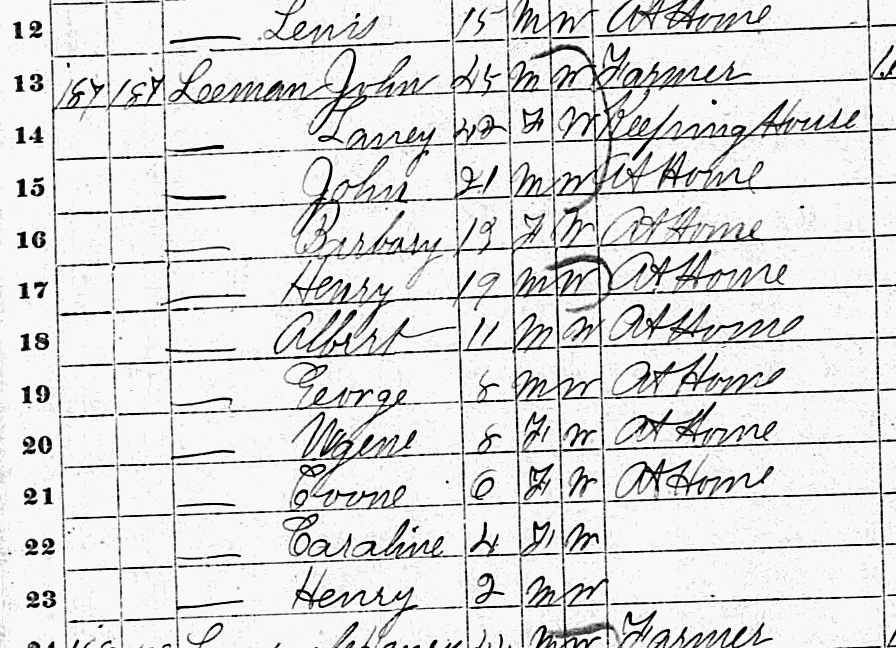 12 — Lewis 15 M W At Home
13 187 187 Leeman John 45 M W Farmer
14 — Laney 42 F W Keeping House
15 — John 21 M W At Home
16 — Barbary 19 F W At Home
17 — Henry 19 M W At Home
18 — Albert 11 M W At Home
19 — George 8 M W At Home
20 — Ugene 8 F W At Home
21 — 6 F W At Home
22 — Caraline 4 F W
23 — Henry 2 M W
M W Farmer